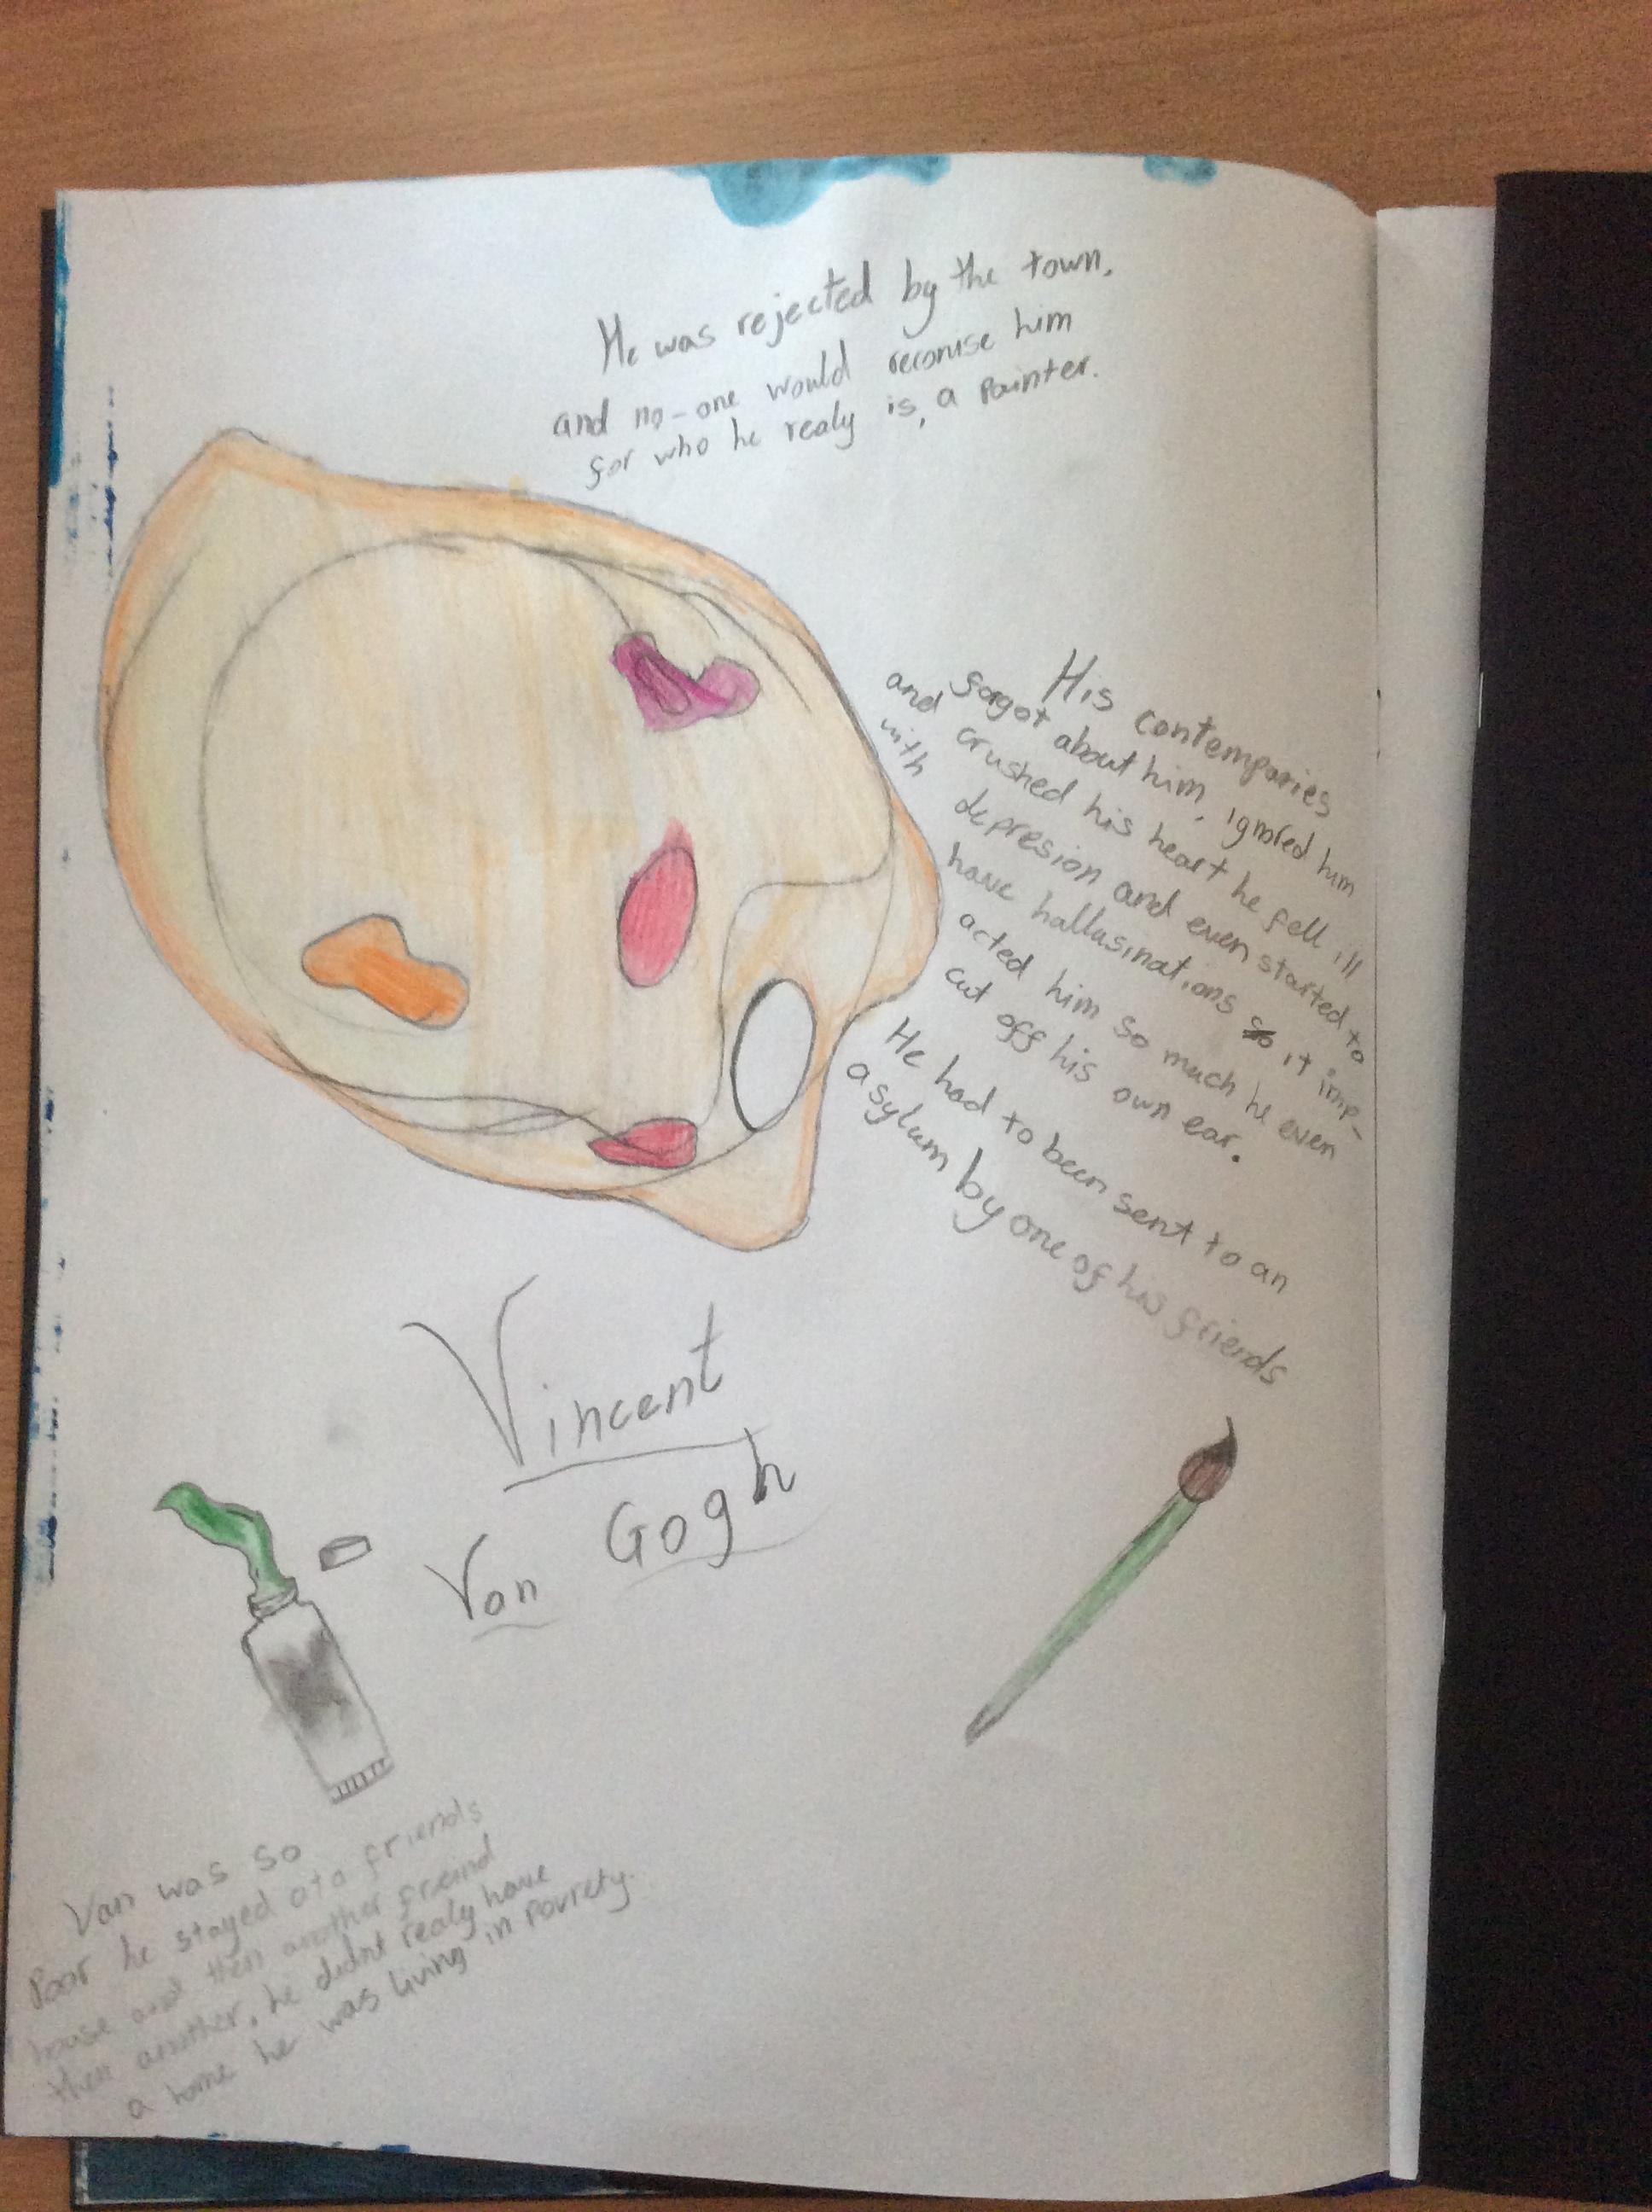 He was rejected by the town,
and no-one would reconise him
for who he realy is, a Painter.
His contemparies
forgot about him, ignored him
and crushed his heart he fell ill
with depresion and even started to
have hallusinations it imp-
acted him so much he even
cut off his own ear.
He had to been sent to an
asylum by one of his friends
Vincent
Van Gogh
Van was so
Poor he stayed at a friends
house and then another freind
then another, he didnt realy have
a home he was living in Povrety.